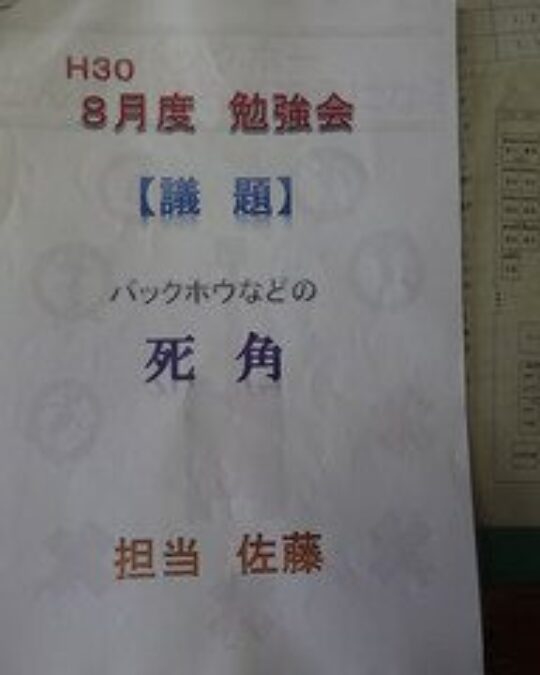 H30
8月度 勉強会
【議 題】
バックホウなどの
死 角
担当 佐藤